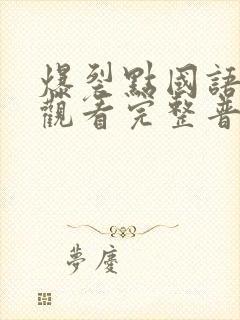 爆裂點國語
觀看完整普
夢慶